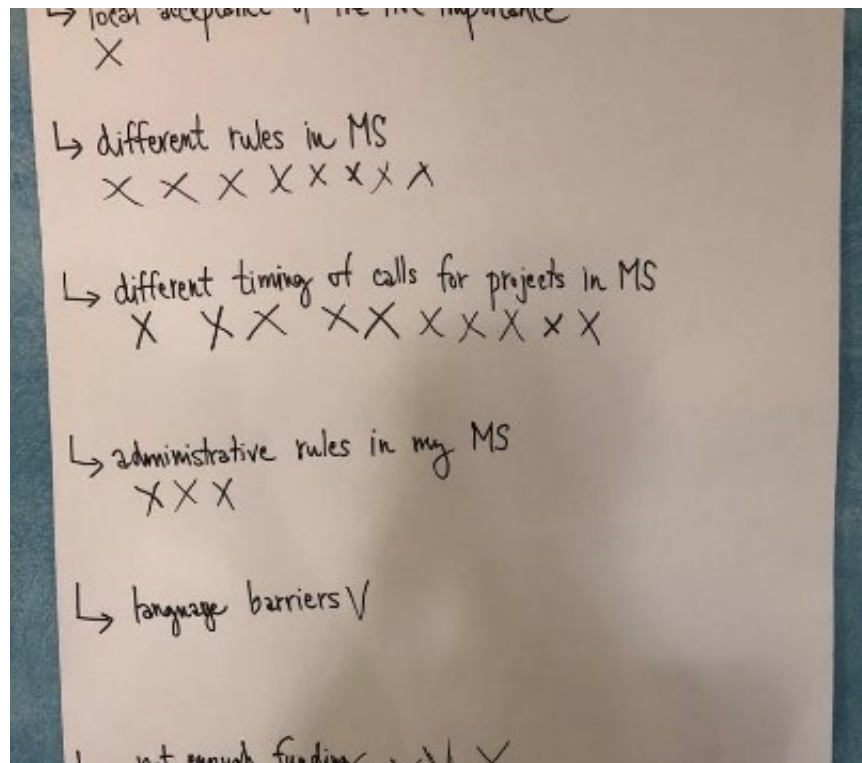 ↳ local acceptance of the importance
X
↳ different rules in MS
X X X X X X X X
↳ different timing of calls for projects in MS
X X X X X X X X X X
↳ administrative rules in my MS
X X X
↳ language barriers V
↳ not enough funding